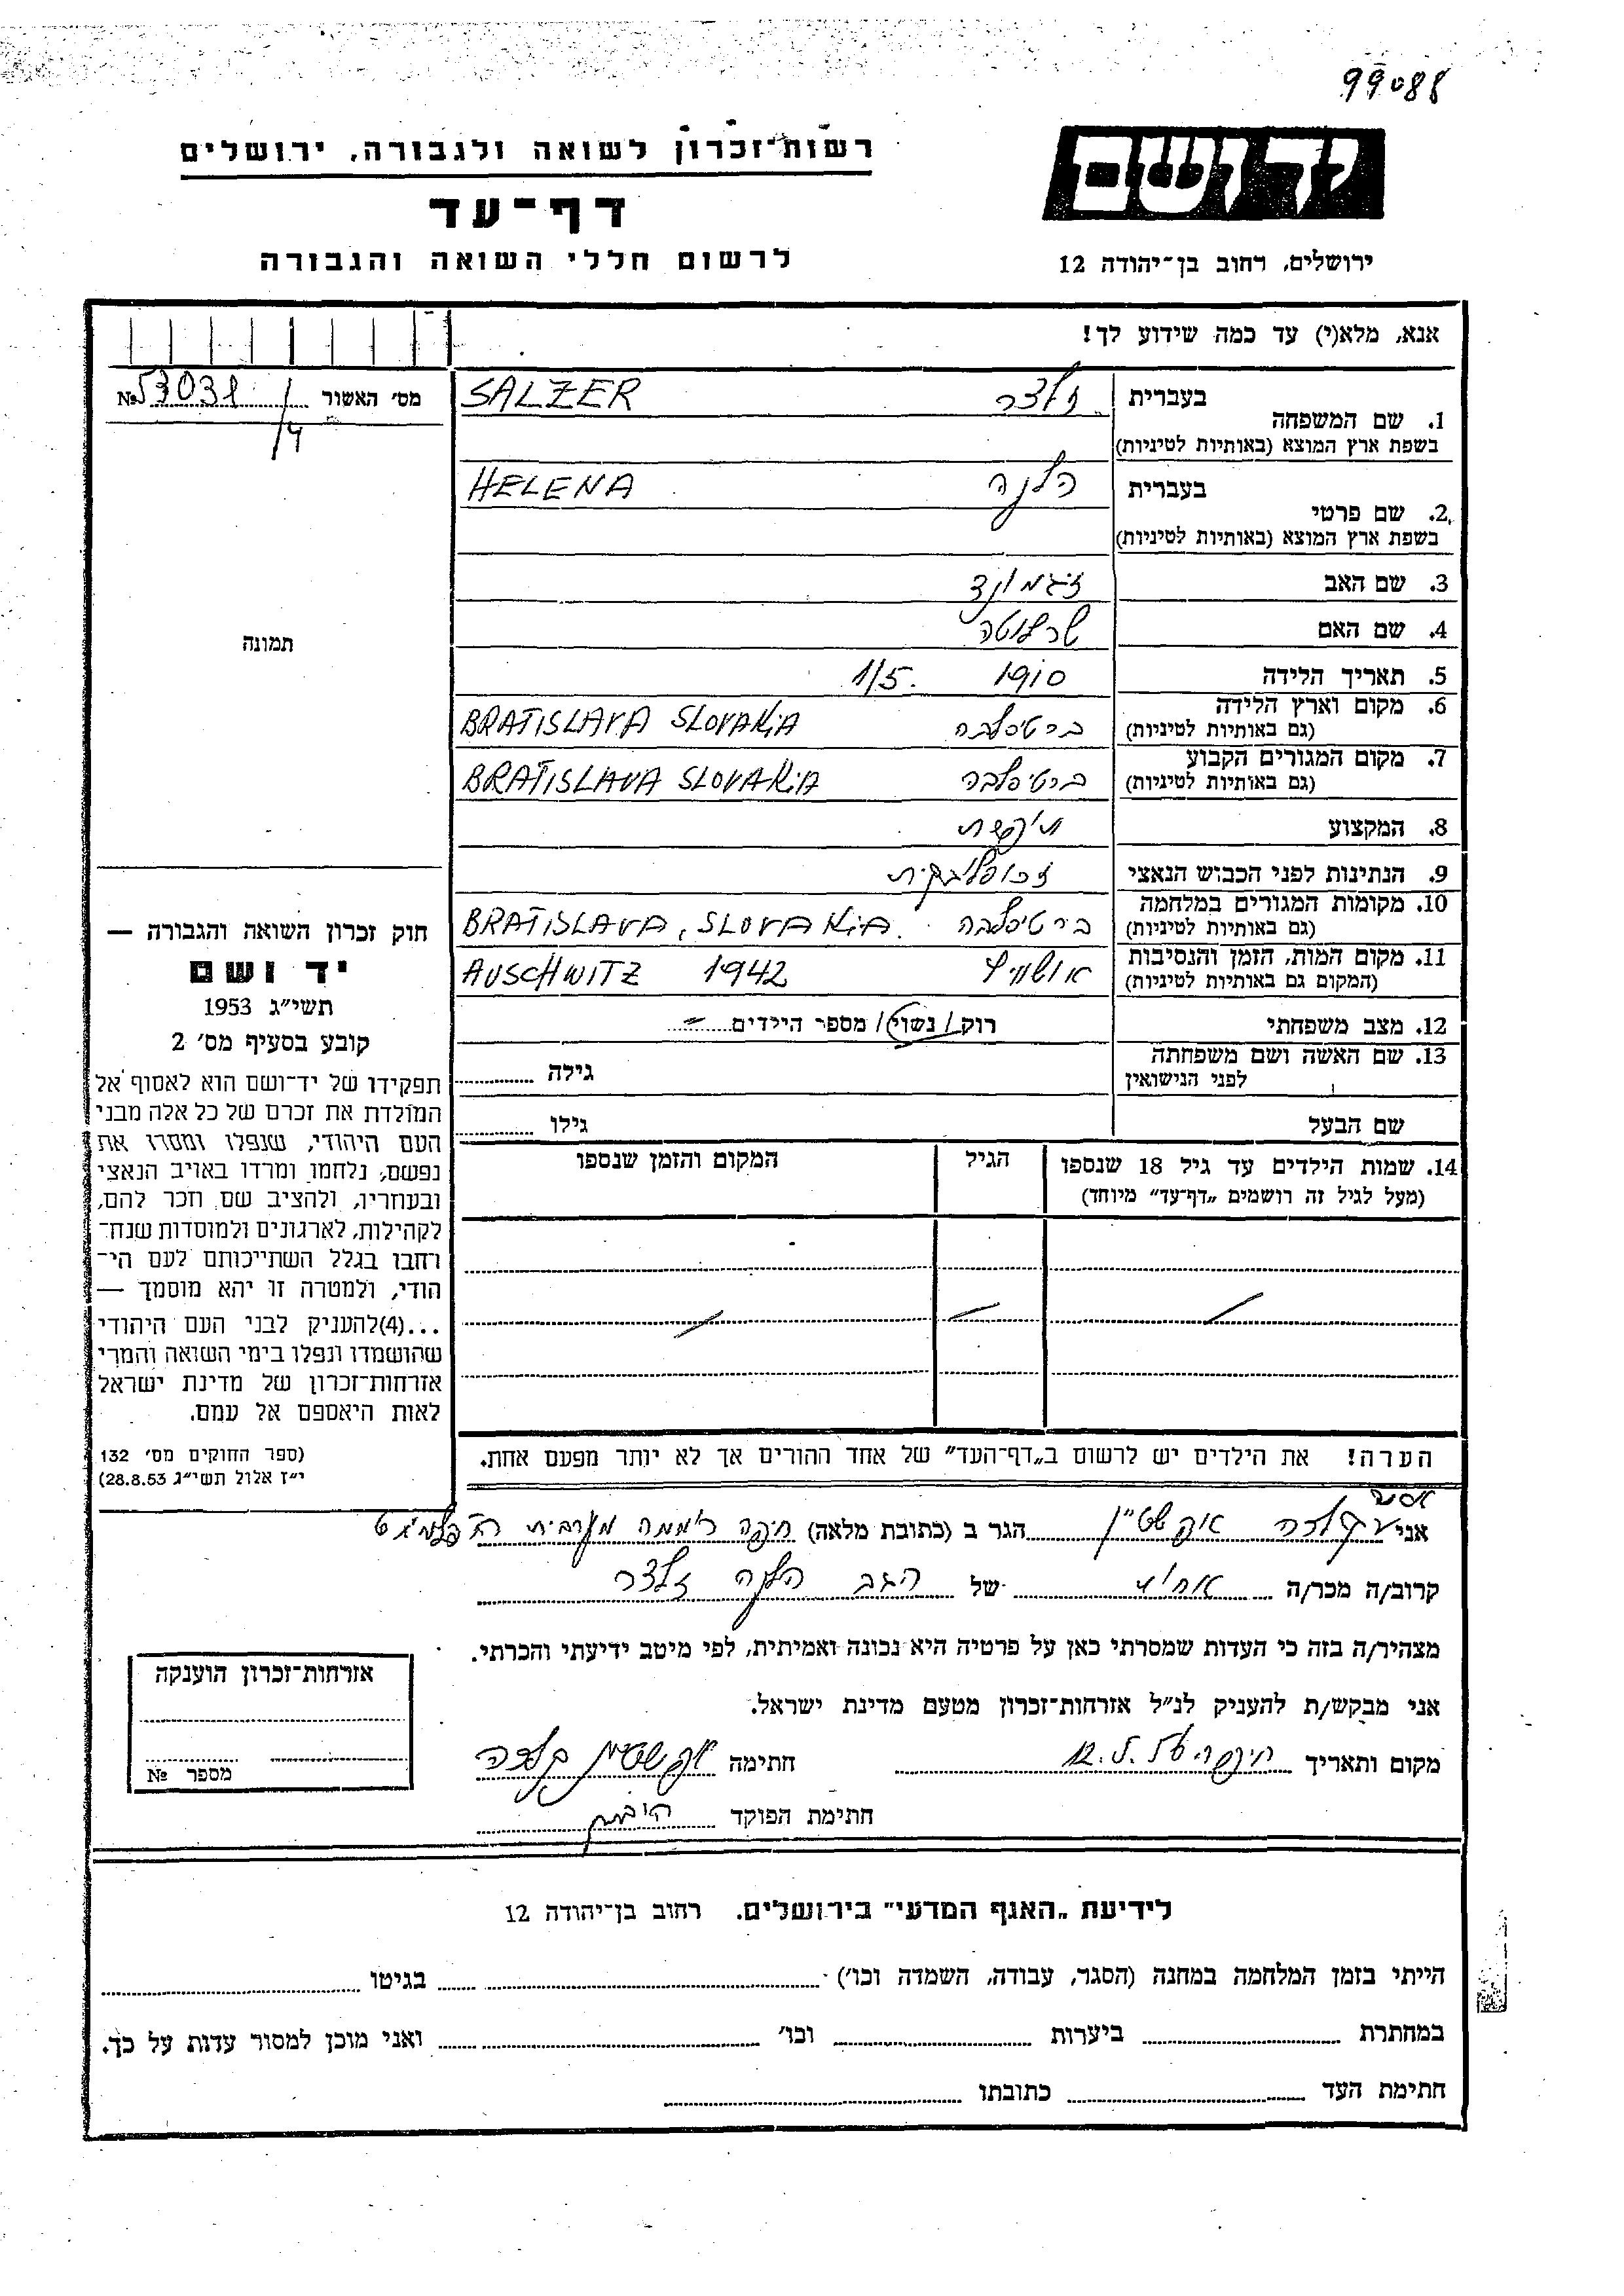 99088
רשות־זכרון לשואה ולגבורה, ירושלים
דף־עד
לרשום חללי השואה והגבורה
יד ושם
ירושלים, רחוב בן־יהודה 12
אנא, מלא(י) עד כמה שידוע לך!
מס׳ האשור № 53031/4
1. שם המשפחה
בעברית זלצר SALZER
בשפת ארץ המוצא (באותיות לטיניות)
2. שם פרטי
בעברית הלנה HELENA
בשפת ארץ המוצא (באותיות לטיניות)
3. שם האב זיגמונד
4. שם האם שרלוטה
5. תאריך הלידה 1910 1/5.
6. מקום וארץ הלידה
(גם באותיות לטיניות) ברטיסלבה BRATISLAVA SLOVAKiA
7. מקום המגורים הקבוע
(גם באותיות לטיניות) ברטיסלבה BRATISLAVA SLOVAKiA
8. המקצוע
9. הנתינות לפני הכבוש הנאצי
10. מקומות המגורים במלחמה
(גם באותיות לטיניות) ברטיסלבה BRATISLAVA, SLOVAKiA.
11. מקום המות, הזמן והנסיבות
(המקום גם באותיות לטיניות) אושוויץ AUSCHWITZ 1942
12. מצב משפחתי רוק/נשוי/ מספר הילדים –
13. שם האשה ושם משפחתה
לפני הנישואין גילה
שם הבעל גילו
14. שמות הילדים עד גיל 18 שנספו
(מעל לגיל זה רושמים „דף־עד״ מיוחד)
הגיל
המקום והזמן שנספו
תמונה
חוק זכרון השואה והגבורה —
יד ושם
תשי״ג 1953
קובע בסעיף מס׳ 2
תפקידו של יד־ושם הוא לאסוף אל
המולדת את זכרם של כל אלה מבני
העם היהודי, שנפלו ומסרו את
נפשם, נלחמו ומרדו באויב הנאצי
ובעוזריו, ולהציב שם וזכר להם,
לקהילות, לארגונים ולמוסדות שנח־
רחבו בגלל השתייכותם לעם הי־
הודי, ולמטרה זו יהא מוסמך —
...(4)להעניק לבני העם היהודי
שהושמדו ונפלו בימי השואה והמרי
אזרחות־זכרון של מדינת ישראל
לאות היאספם אל עמם.
(ספר החוקים מס׳ 132
י״ז אלול תשי״ג 28.8.53)
הערה! את הילדים יש לרשום ב„דף־העד״ של אחד ההורים אך לא יותר מפעם אחת.
אני אקשטיין הגר ב (כתובת מלאה) חיפה
קרוב/ה מכר/ה של הגב הלנה זלצר
מצהיר/ה בזה כי העדות שמסרתי כאן על פרטיה היא נכונה ואמיתית, לפי מיטב ידיעתי והכרתי.
אני מבקש/ת להעניק לנ״ל אזרחות־זכרון מטעם מדינת ישראל.
מקום ותאריך חיפה חתימה אקשטיין
חתימת הפוקד
אזרחות־זכרון הוענקה
מספר №
לידיעת „האגף המדעי״ בירושלים. רחוב בן־יהודה 12
הייתי בזמן המלחמה במחנה (הסגר, עבודה, השמדה וכו׳) בגיטו
במחתרת ביערות וכו׳ ואני מוכן למסור עדות על כך.
חתימת העד כתובתו